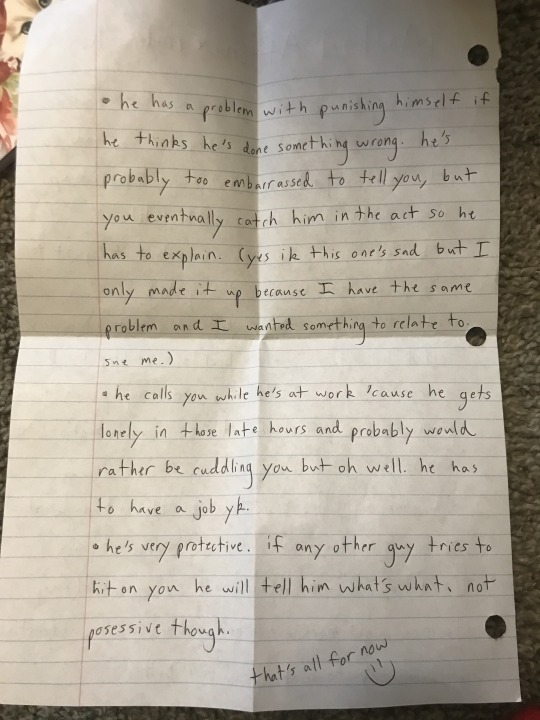 • he has a problem with punishing himself if
he thinks he's done something wrong. he's
probably too embarrassed to tell you, but
you eventually catch him in the act so he
has to explain. (yes ik this one's sad but I
only made it up because I have the same
problem and I wanted something to relate to.
sue me.)
• he calls you while he's at work 'cause he gets
lonely in those late hours and probably would
rather be cuddling you but oh well. he has
to have a job yk.
• he's very protective. if any other guy tries to
hit on you he will tell him what's what. not
posessive though.
that's all for now